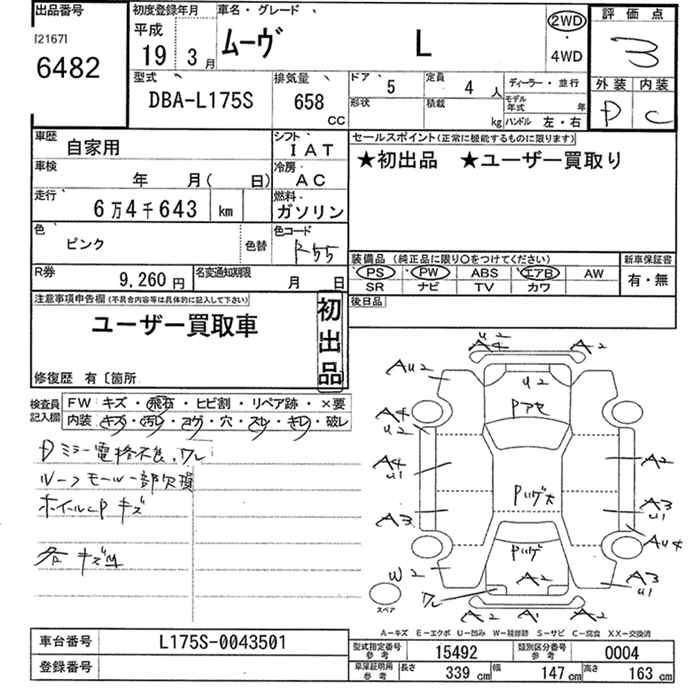 出品番号
[2167]
6482
初度登録年月
平成
19年 3月
車名・グレード
ムーヴ L
2WD
・
4WD
評価点
3
外装 内装
D C
型式
DBA-L175S
排気量
658
cc
ドア 5
定員 4 人
ディーラー・並行
形状
積載 kg
モデル年式 年
ハンドル 左・右
車歴
自家用
シフト
IAT
車検
年 月( 日)
冷房
AC
走行
6万4千643 km
燃料
ガソリン
色
ピンク
色替
色コード
R55
R券
9,260円
名変通知期限
月 日
セールスポイント(正常に機能するものに限ります)
★初出品 ★ユーザー買取り
装備品(純正品に限り○をつけてください)
PS PW ABS エアB AW
SR ナビ TV カワ
新車保証書
有・無
後日品
注意事項申告欄(不具合内容等は具体的に記入して下さい)
ユーザー買取車
初出品
修復歴 有〔箇所
検査員記入欄
FW キズ・飛石・ヒビ割・リペア跡・×要
内装 キズ・汚レ・コゲ・穴・スレ・キレ・破レ
Dミラー電格不良、ワレ
ルーフモール一部欠損
ホイルCPキズ
各キズ凹
U2
A4
A2
AU2
U2
Pアセ
A4
U2
A4
U1
A2
Pハゲ大
A3
A3
U1
Pハゲ
AU4
W2
A2
A3
U1
ワレ
スペア
A2
A1
A2
A―キズ E―エクボ U―凹み W―補修跡 S―サビ C―腐食 XX―交換済
車台番号
L175S-0043501
登録番号
型式指定番号 参考
15492
類別区分番号 参考
0004
車庫証明用 参考
長さ 339 cm
幅 147 cm
高さ 163 cm